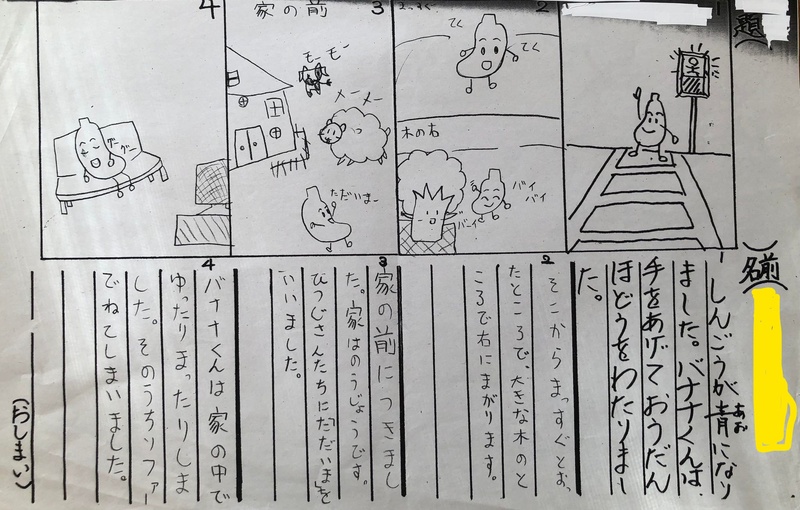 題(
)
名前(
1
2
まっすぐ
てく
てく
木の右
バイ
バイ
バーイ
3
家の前
モーモー
メーメー
ただいまー
4
グー
グー
1
しんごうが青になり
あお
ました。バナナくんは、
手をあげておうだん
ほどうをわたりまし
た。
2
そこからまっすぐとおっ
たところで、大きな木のと
ころで右にまがります。
3
家の前につきまし
た。家はのうじょうです。
ひつじさんたちに「ただいま」を
いいました。
4
バナナくんは家の中で
ゆったりまったりしま
した。そのうちソファー
でねてしまいました。
(おしまい)